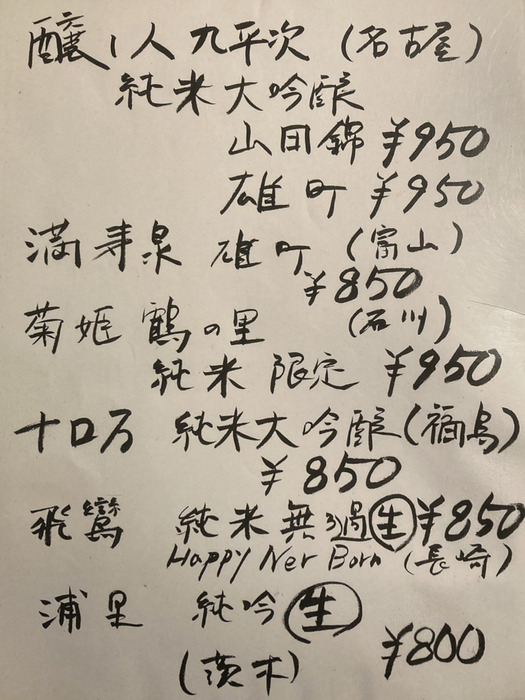 醸し人九平次 (名古屋)
純米大吟醸
山田錦 ¥950
雄町 ¥950
満寿泉 雄町 (富山)
¥850
菊姫 鶴の里 (石川)
純米 限定 ¥950
十ロ万 純米大吟醸 (福島)
¥850
飛鸞 純米無ろ過生 ¥850
Happy Ner Born (長崎)
浦里 純吟 生
(茨木) ¥800